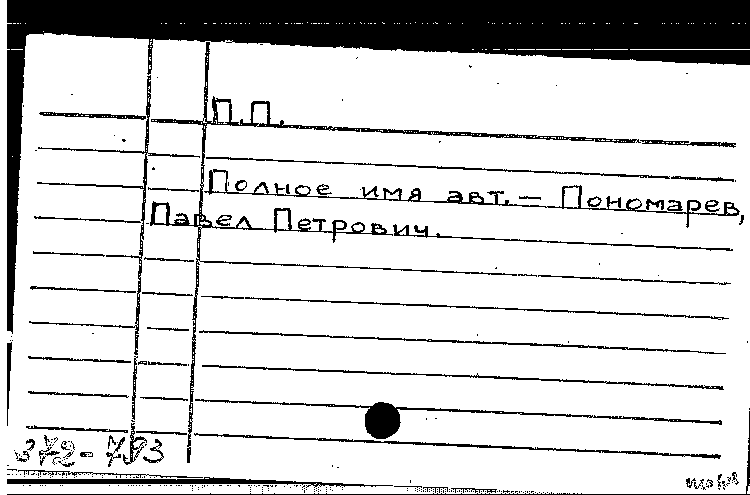 П.П.
Полное имя авт. — Пономарев,
Павел Петрович.
372-793